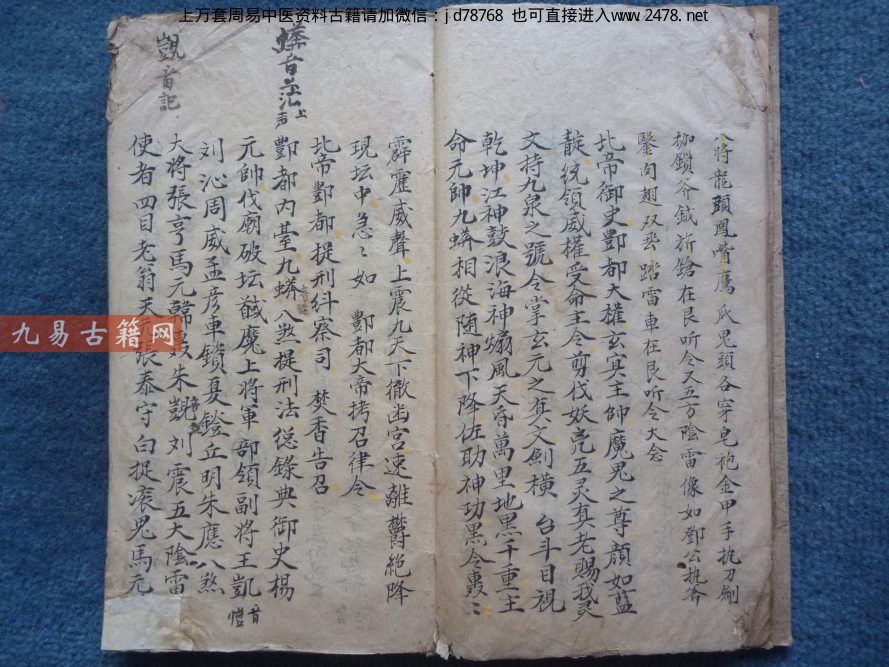 上万套周易中医资料古籍请加微信：jd78768 也可直接进入www.2478.net
八将龍頭鳳嘴鷹爪鬼頭各穿皂袍金甲手执刀劍
枷鎖斧鉞斨鎗在艮听令又五方陰雷像如鄧公执斧
鑿肉翅双飛踏雷車在艮听令大念
北帝御史酆都大權玄㝠主帥魔鬼之尊顔如藍
靛統領威權受命主令剪伐妖兇五灵真老賜我灵
文持九泉之號令掌玄元之真文劍橫 台斗目視
乾坤江神鼓浪海神煽風天昏萬里地黑千重主
命元帥九蟒相從随神下降佐助神功黑令轟〻
霹靂威聲上震九天下徹幽宮速離欝絕降
現坛中急〻如 酆都大帝拷召律令
北帝酆都提刑糾察司 焚香告召
酆都內臺九蟒八煞提刑法總錄典御史楊
元帥伐廟破坛馘魔上將軍部領副將王凱
音愷
刘沁周威孟彥車鎖夏鐙丘明朱應八煞
大将張亨馬元韓朱覬刘震五大陰雷
使者四目老翁天張泰守白捉滾鬼馬元
蟒音茫上声
覬音記
九易古籍网